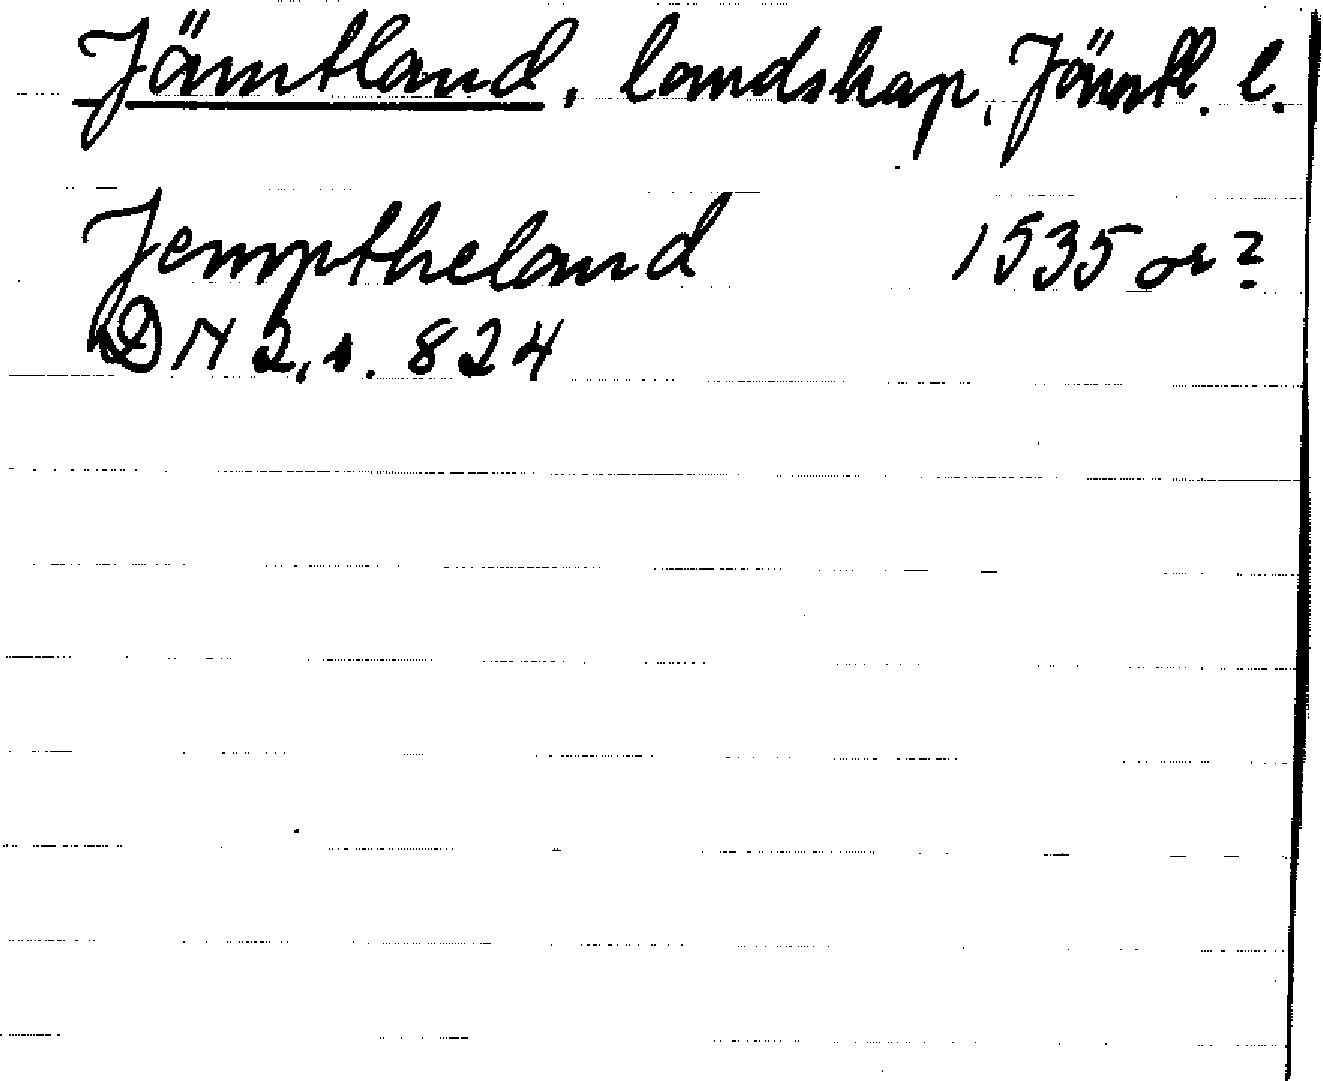 Jämtland, landskap, Jämtl. l.
Jemptheland 1535 or?
DN 2, s. 824